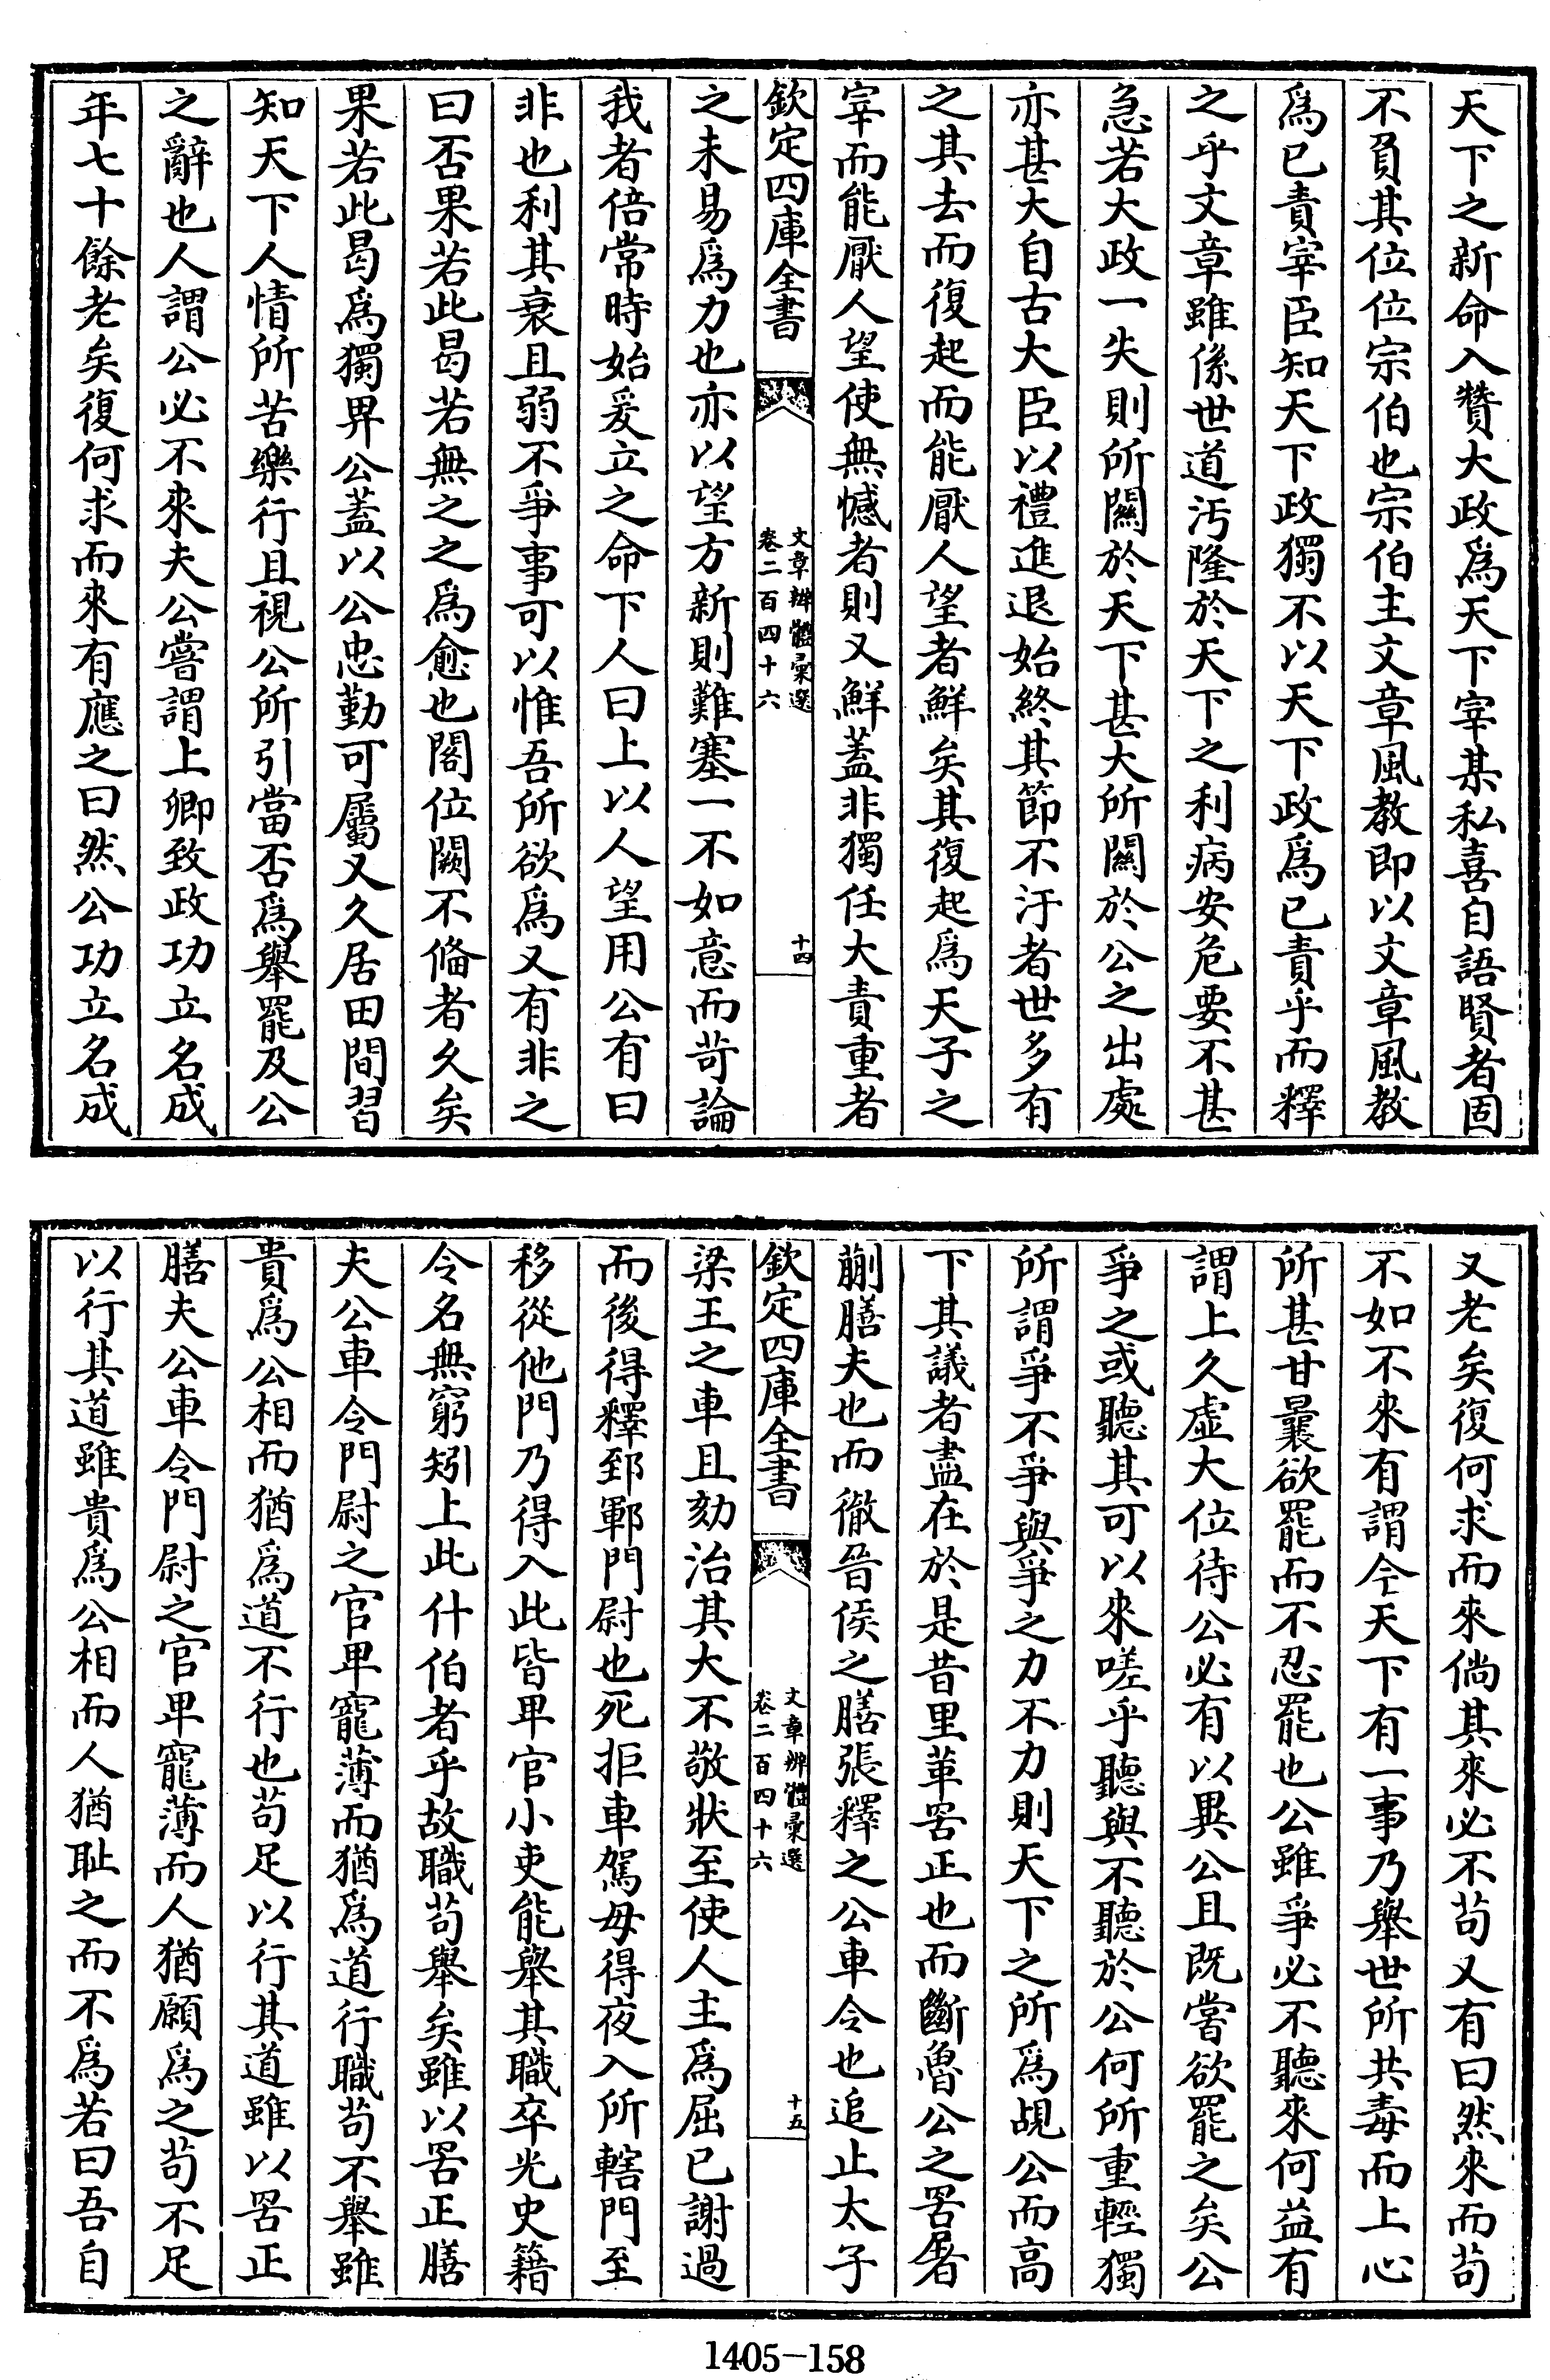 天下之新命入贊大政爲天下宰某私喜自語賢者固
不負其位位宗伯也宗伯主文章風教即以文章風教
爲已責宰臣知天下政獨不以天下政爲已責乎而釋
之乎文章雖係世道汚隆於天下之利病安危要不甚
急若大政一失則所關於天下甚大所關於公之出處
亦甚大自古大臣以禮進退始終其節不汙者世多有
之其去而復起而能厭人望者鮮矣其復起爲天子之
宰而能厭人望使無憾者則又鮮蓋非獨任大責重者
欽定四庫全書
文章辨體彙選
卷二百四十六
十四
之未易爲力也亦以望方新則難塞一不如意而苛論
我者倍常時始爰立之命下人曰上以人望用公有曰
非也利其衰且弱不爭事可以惟吾所欲爲又有非之
曰否果若此曷若無之之爲愈也閣位闕不備者久矣
果若此曷爲獨畀公蓋以公忠勤可屬又久居田間習
知天下人情所苦樂行且視公所引當否爲舉罷及公
之辭也人謂公必不來夫公嘗謂上卿致政功立名成
年七十餘老矣復何求而來有應之曰然公功立名成
又老矣復何求而來倘其來必不苟又有曰然來而苟
不如不來有謂今天下有一事乃舉世所共毒而上心
所甚甘曩欲罷而不忍罷也公雖爭必不聽來何益有
謂上久虛大位待公必有以異公且既嘗欲罷之矣公
爭之或聽其可以來嗟乎聽與不聽於公何所重輕獨
所謂爭不爭與爭之力不力則天下之所爲覘公而高
下其議者盡在於是昔里革罟正也而斷魯公之罟屠
蒯膳夫也而徹晉侯之膳張釋之公車令也追止太子
欽定四庫全書
文章辨體彙選
卷二百四十六
十五
梁王之車且劾治其大不敬狀至使人主爲屈已謝過
而後得釋郅鄆門尉也死拒車駕毋得夜入所轄門至
移從他門乃得入此皆卑官小吏能舉其職卒光史籍
令名無窮矧上此什伯者乎故職苟舉矣雖以罟正膳
夫公車令門尉之官卑寵薄而猶爲道行職苟不舉雖
貴爲公相而猶爲道不行也苟足以行其道雖以罟正
膳夫公車令門尉之官卑寵薄而人猶願爲之苟不足
以行其道雖貴爲公相而人猶耻之而不爲若曰吾自
1405-158